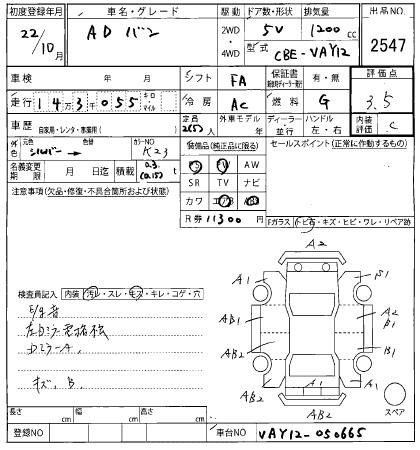 初度登録年月
車名・グレード
駆動
ドア数・形状
排気量
出品NO.
22/10月
AD バン
2WD
・
4WD
5V
1200 cc
型式
CBE-VAY12
2547
車検
年 月
シフト
FA
保証書
有・無
評価点
走行
143千055
キロ
マイル
冷房
AC
燃料
G
3.5
車歴
自家用・レンタ・事業用( )
定員
2(5)人
外車モデル
年
ディーラー・並行
ハンドル
左・右
内装評価
C
外色
元色
シルバー
色替
カラーNO
K23
装備品(純正品に限る)
セールスポイント(正常に作動するもの)
名義変更期限
月 日迄
積載
0.3
(0.15)t
PS PW AW
SR TV ナビ
カワ エアB ABS
注意事項(欠品・修復・不具合箇所および状態)
R券 11300 円
Fガラス(トビ石・キズ・ヒビ・ワレ・リペア跡)
A2
A1
B1
検査員記入
内装(汚レ・スレ・モスキレ・コゲ・穴)
AB1
A2
B1
AB2
DミラーA、
キズ、B、
AB2
A1
A1
AB2
スペア
長さ cm
幅 cm
高さ cm
登録NO
車台NO
VAY12-050665